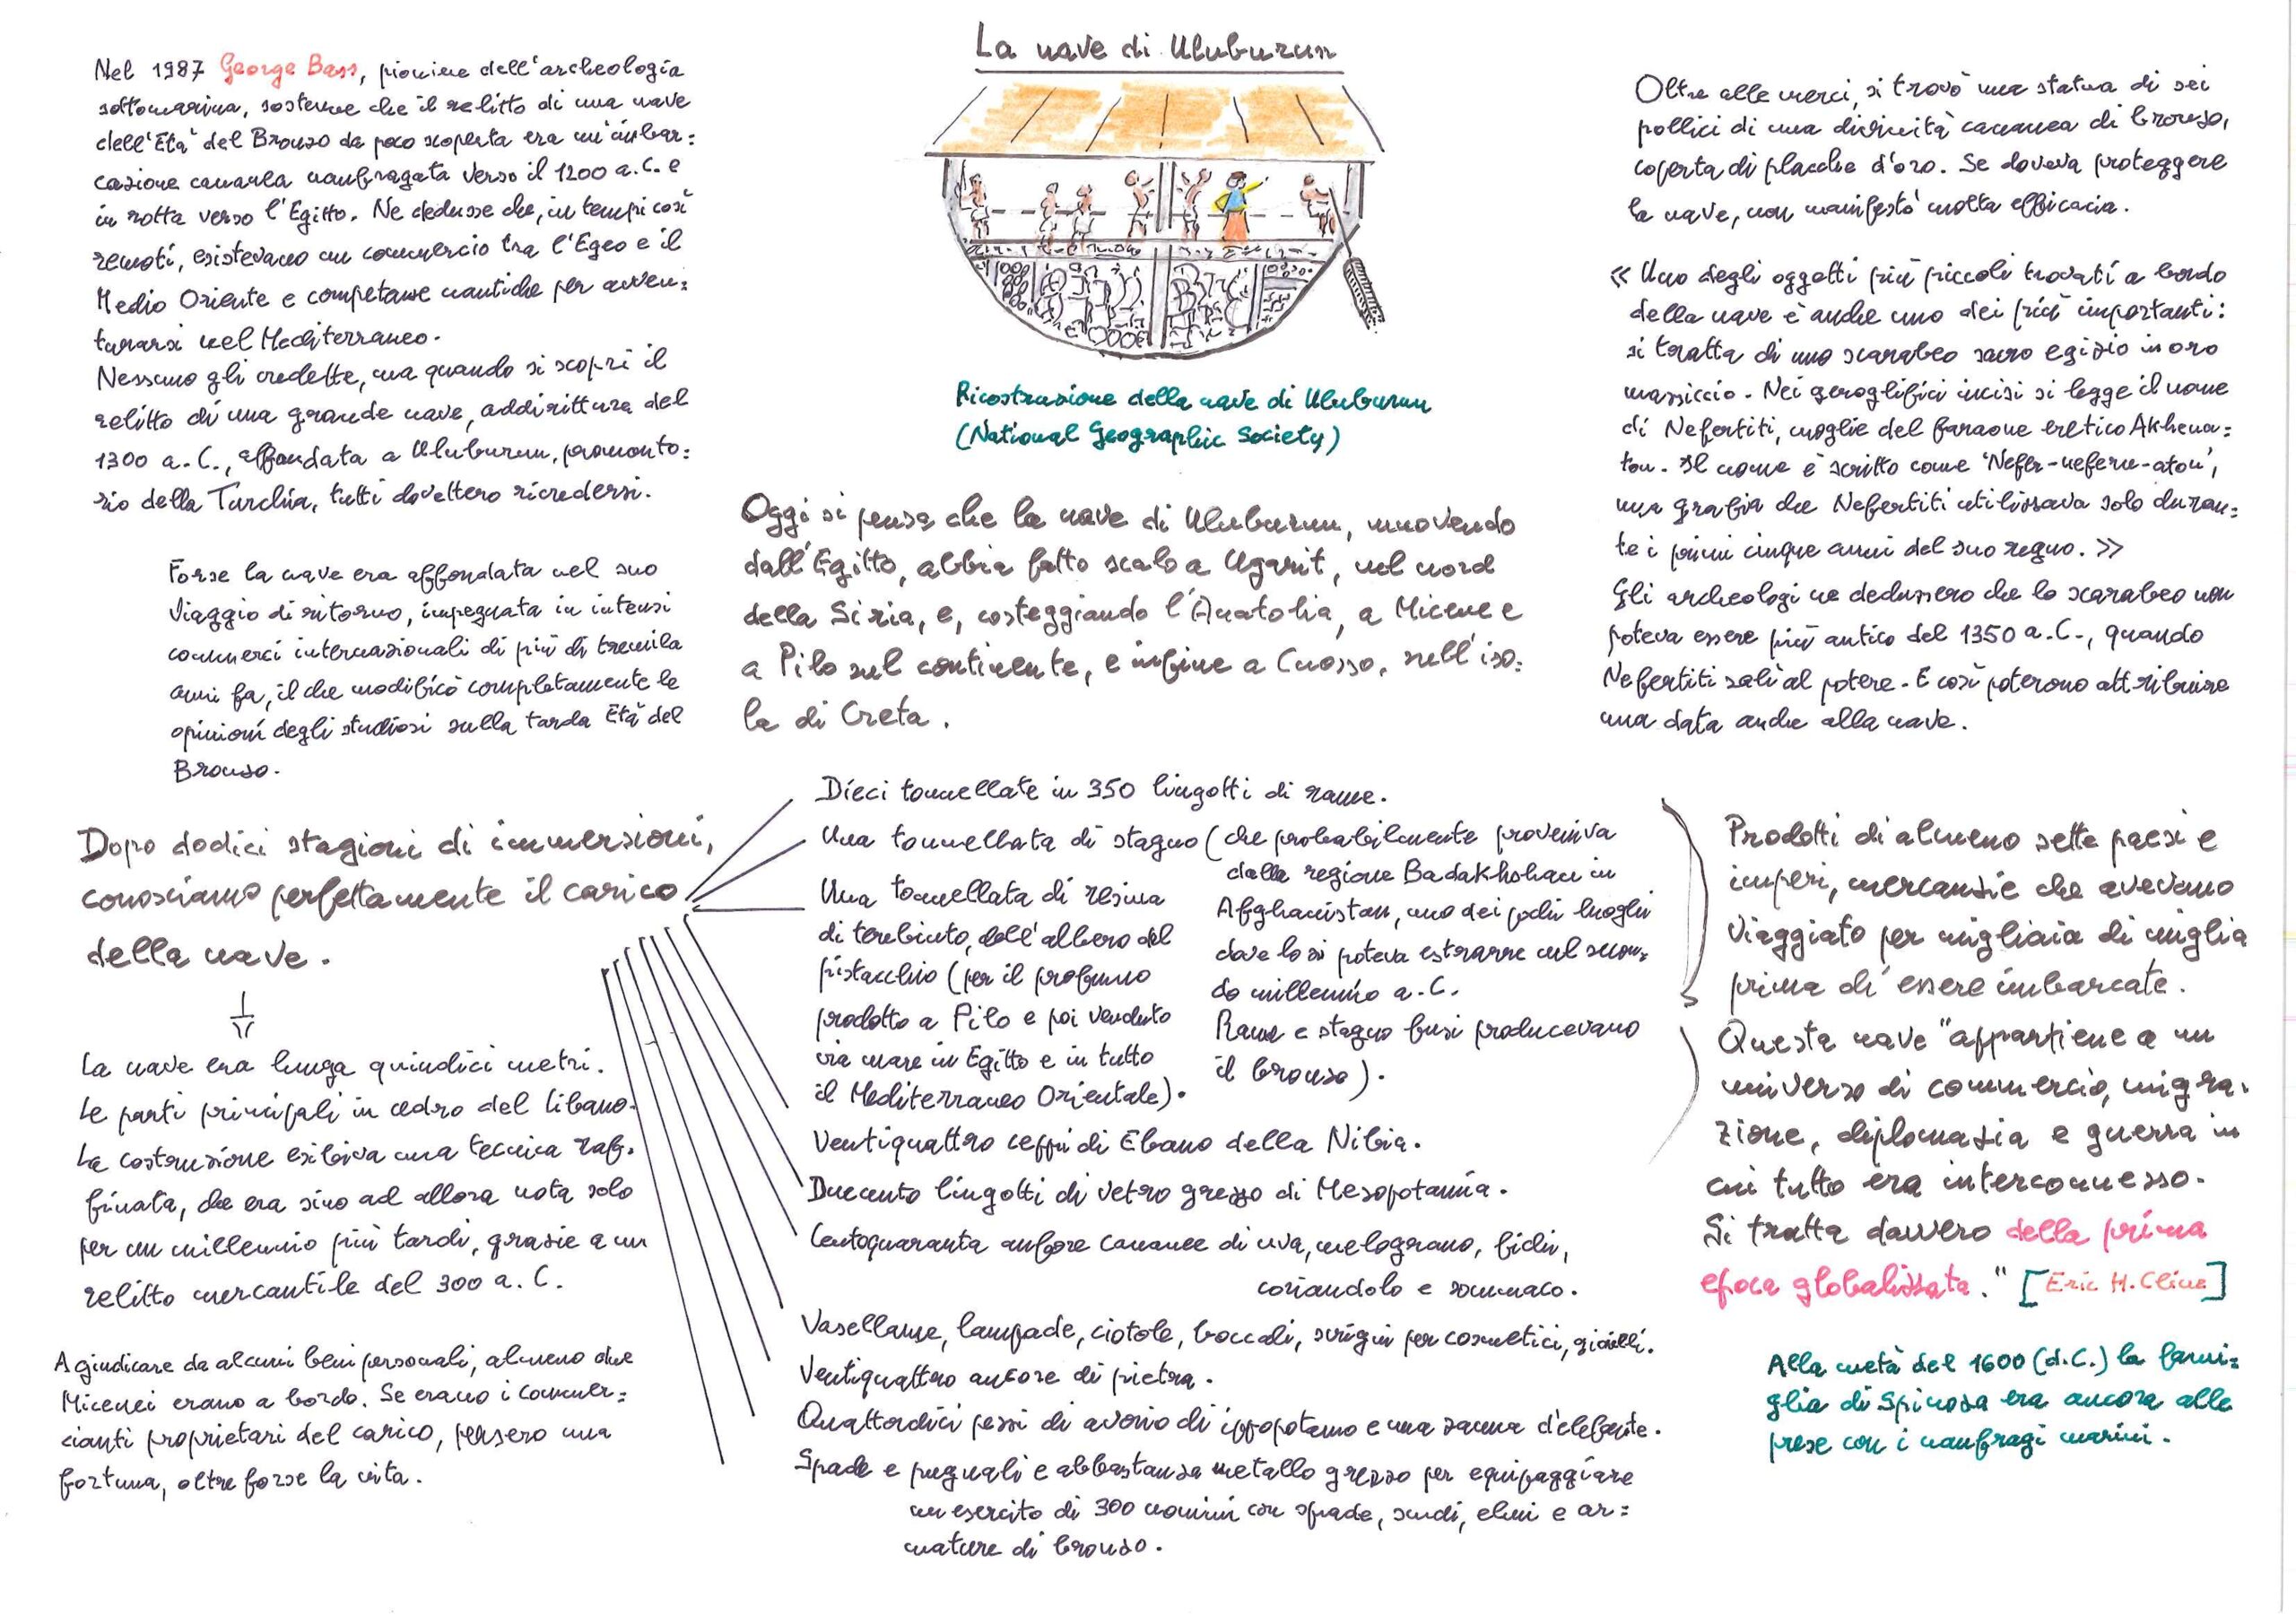 La nave di Uluburun
Nel 1987 George Bass, pioniere dell'archeologia
sottomarina, sostenne che il relitto di una nave
dell'Età del Bronzo da poco scoperta era un'imbar=
cazione cananea naufragata verso il 1200 a.C. e
in rotta verso l'Egitto. Ne dedusse che, in tempi così
remoti, esistevano un commercio tra l'Egeo e il
Medio Oriente e competenze nautiche per avven=
turarsi nel Mediterraneo.
Nessuno gli credette, ma quando si scoprì il
relitto di una grande nave, addirittura del
1300 a.C., affondata a Uluburun, promonto=
rio della Turchia, tutti dovettero ricredersi.
Forse la nave era affondata nel suo
viaggio di ritorno, impegnata in intensi
commerci internazionali di più di tremila
anni fa, il che modificò completamente le
opinioni degli studiosi sulla tarda Età del
Bronzo.
Ricostruzione della nave di Uluburun
(National Geographic Society)
Oggi si pensa che la nave di Uluburun, muovendo
dall'Egitto, abbia fatto scalo a Ugarit, nel nord
della Siria, e, costeggiando l'Anatolia, a Micene e
a Pilo sul continente, e infine a Cnosso, nell'iso=
la di Creta.
Oltre alle merci, si trovò una statua di sei
pollici di una divinità cananea di bronzo,
coperta di placche d'oro. Se doveva proteggere
la nave, non manifestò molta efficacia.
« Uno degli oggetti più piccoli trovati a bordo
della nave è anche uno dei più importanti:
si tratta di uno scarabeo sacro egizio in oro
massiccio. Nei geroglifici incisi si legge il nome
di Nefertiti, moglie del faraone eretico Akhena=
ton. Il nome è scritto come 'Nefer-neferu-aton',
una grafia che Nefertiti utilizzava solo duran=
te i primi cinque anni del suo regno. »
Gli archeologi ne dedussero che lo scarabeo non
poteva essere più antico del 1350 a.C., quando
Nefertiti salì al potere. E così poterono attribuire
una data anche alla nave.
Dopo dodici stagioni di immersioni,
conosciamo perfettamente il carico
della nave.
La nave era lunga quindici metri.
Le parti principali in cedro del Libano.
La costruzione esibiva una tecnica raf=
finata, che era sino ad allora nota solo
per un millennio più tardi, grazie a un
relitto mercantile del 300 a.C.
A giudicare da alcuni beni personali, almeno due
Micenei erano a bordo. Se erano i commer=
cianti proprietari del carico, persero una
fortuna, oltre forse la vita.
Dieci tonnellate in 350 lingotti di rame.
Una tonnellata di stagno (che probabilmente proveniva
dalla regione Badakhshan in
Afghanistan, uno dei pochi luoghi
dove lo si poteva estrarre nel secon=
do millennio a.C.
Rame e stagno fusi producevano
il bronzo).
Una tonnellata di resina
di terebinto, dell'albero del
pistacchio (per il profumo
prodotto a Pilo e poi venduto
via mare in Egitto e in tutto
il Mediterraneo Orientale).
Ventiquattro ceppi di Ebano della Nibia.
Duecento lingotti di vetro grezzo di Mesopotamia.
Centoquaranta anfore cananee di uva, melograno, fichi,
coriandolo e sommaco.
Vasellame, lampade, ciotole, boccali, scrigni per cosmetici, gioielli.
Ventiquattro ancore di pietra.
Quattordici pezzi di avorio di ippopotamo e una zanna d'elefante.
Spade e pugnali e abbastanza metallo grezzo per equipaggiare
un esercito di 300 uomini con spade, scudi, elmi e ar=
mature di bronzo.
Prodotti di almeno sette paesi e
imperi, mercanzie che avevano
viaggiato per migliaia di miglia
prima di essere imbarcate.
Questa nave "appartiene a un
universo di commercio, migra=
zione, diplomazia e guerra in
cui tutto era interconnesso.
Si tratta davvero della prima
epoca globalizzata." [Eric H. Cline]
Alla metà del 1600 (d.C.) la fami=
glia di Spinoza era ancora alle
prese con i naufragi marini.